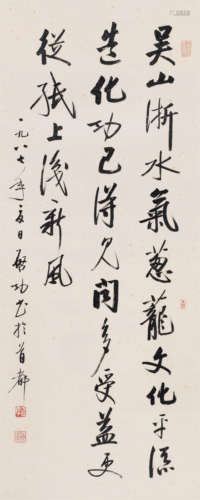 吴山浙水氣葱蘢文化平添
造化功已得見聞多受益更
從紙上淺新風
一九八七年夏日啟功書於首都